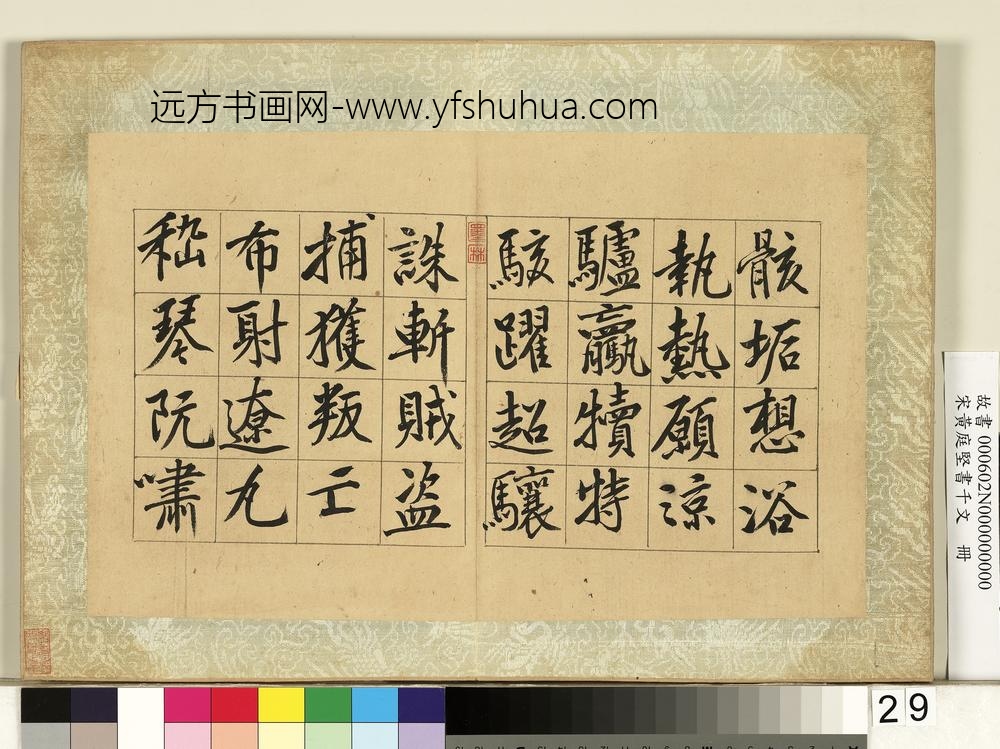 远方书画网-www.yfshuhua.com
骸垢想浴
執熱願涼
驢驘犢特
駭躍超驤
誅斬賊盜
捕獲叛亡
布射遼丸
嵇琴阮嘯
墨林
故書 000602N000000000
宋黃庭堅書千文 冊
29